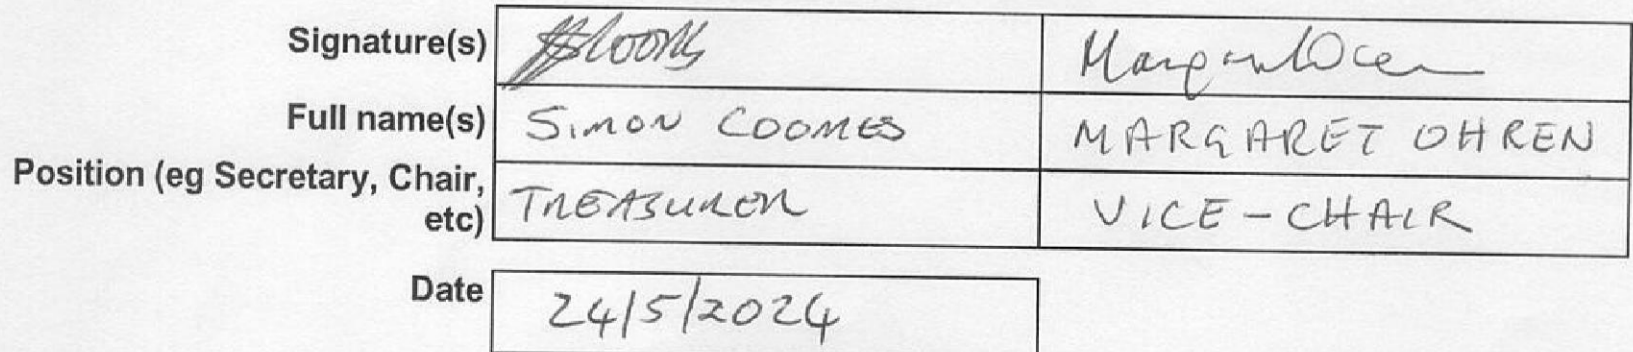 Signature(s)
Full name(s) SIMON COOMES MARGARET OHREN
Position (eg Secretary, Chair,
etc) TREASURER VICE-CHAIR
Date 24/5/2024